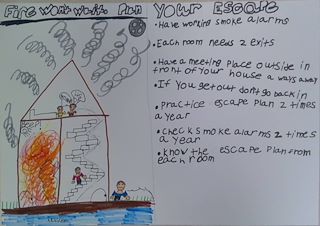 Fire Wont Wait. Plan Your Escape
• Have working smoke alarms
• Each room needs 2 exits
• Have a meeting place outside in
front of your house a ways away
• If you get out dont go back in
• Practice escape plan 2 times
a year
• Check smoke alarms 2 times
a year
• know the escape plan from
each room